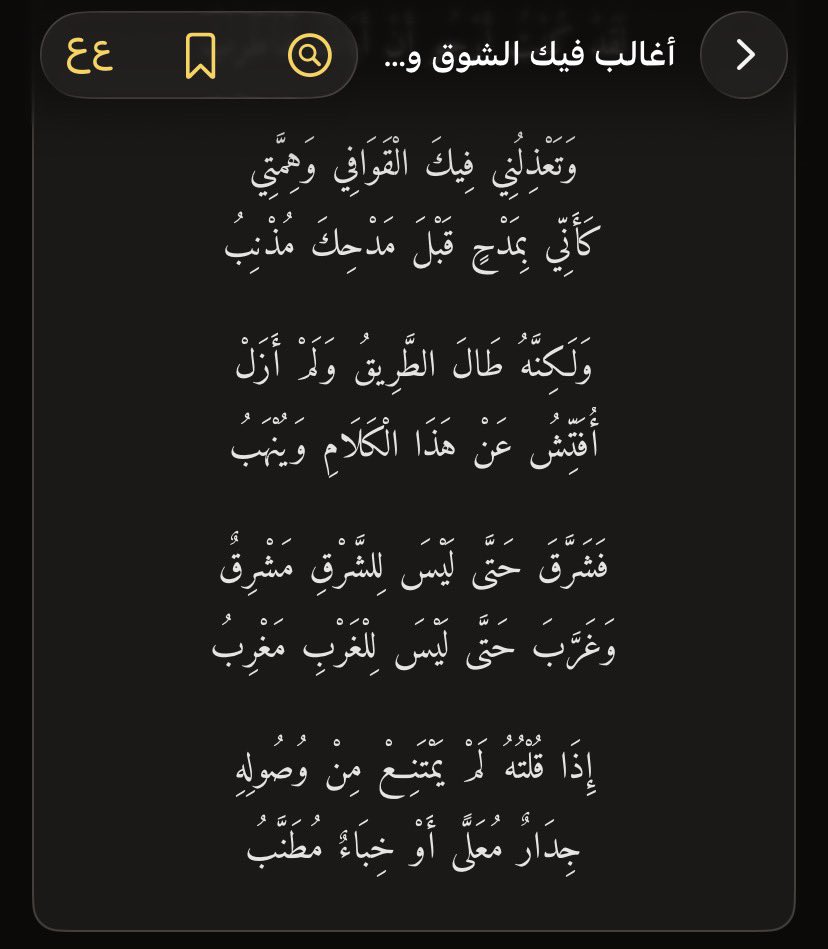 أغالب فيك الشوق و...
عع
وَتَعْذِلُنِي فِيكَ الْقَوَافِي وَهِمَّتِي
كَأَنِّي بِمَدْحٍ قَبْلَ مَدْحِكَ مُذْنِبُ
وَلَكِنَّهُ طَالَ الطَّرِيقُ وَلَمْ أَزَلْ
أُفَتِّشُ عَنْ هَذَا الْكَلَامِ وَيُنْهَبُ
فَشَرَّقَ حَتَّى لَيْسَ لِلشَّرْقِ مَشْرِقٌ
وَغَرَّبَ حَتَّى لَيْسَ لِلْغَرْبِ مَغْرِبُ
إِذَا قُلْتُهُ لَمْ يَمْتَنِعْ مِنْ وُصُولِهِ
جِدَارٌ مُعَلًّى أَوْ خِبَاءٌ مُطَنَّبُ